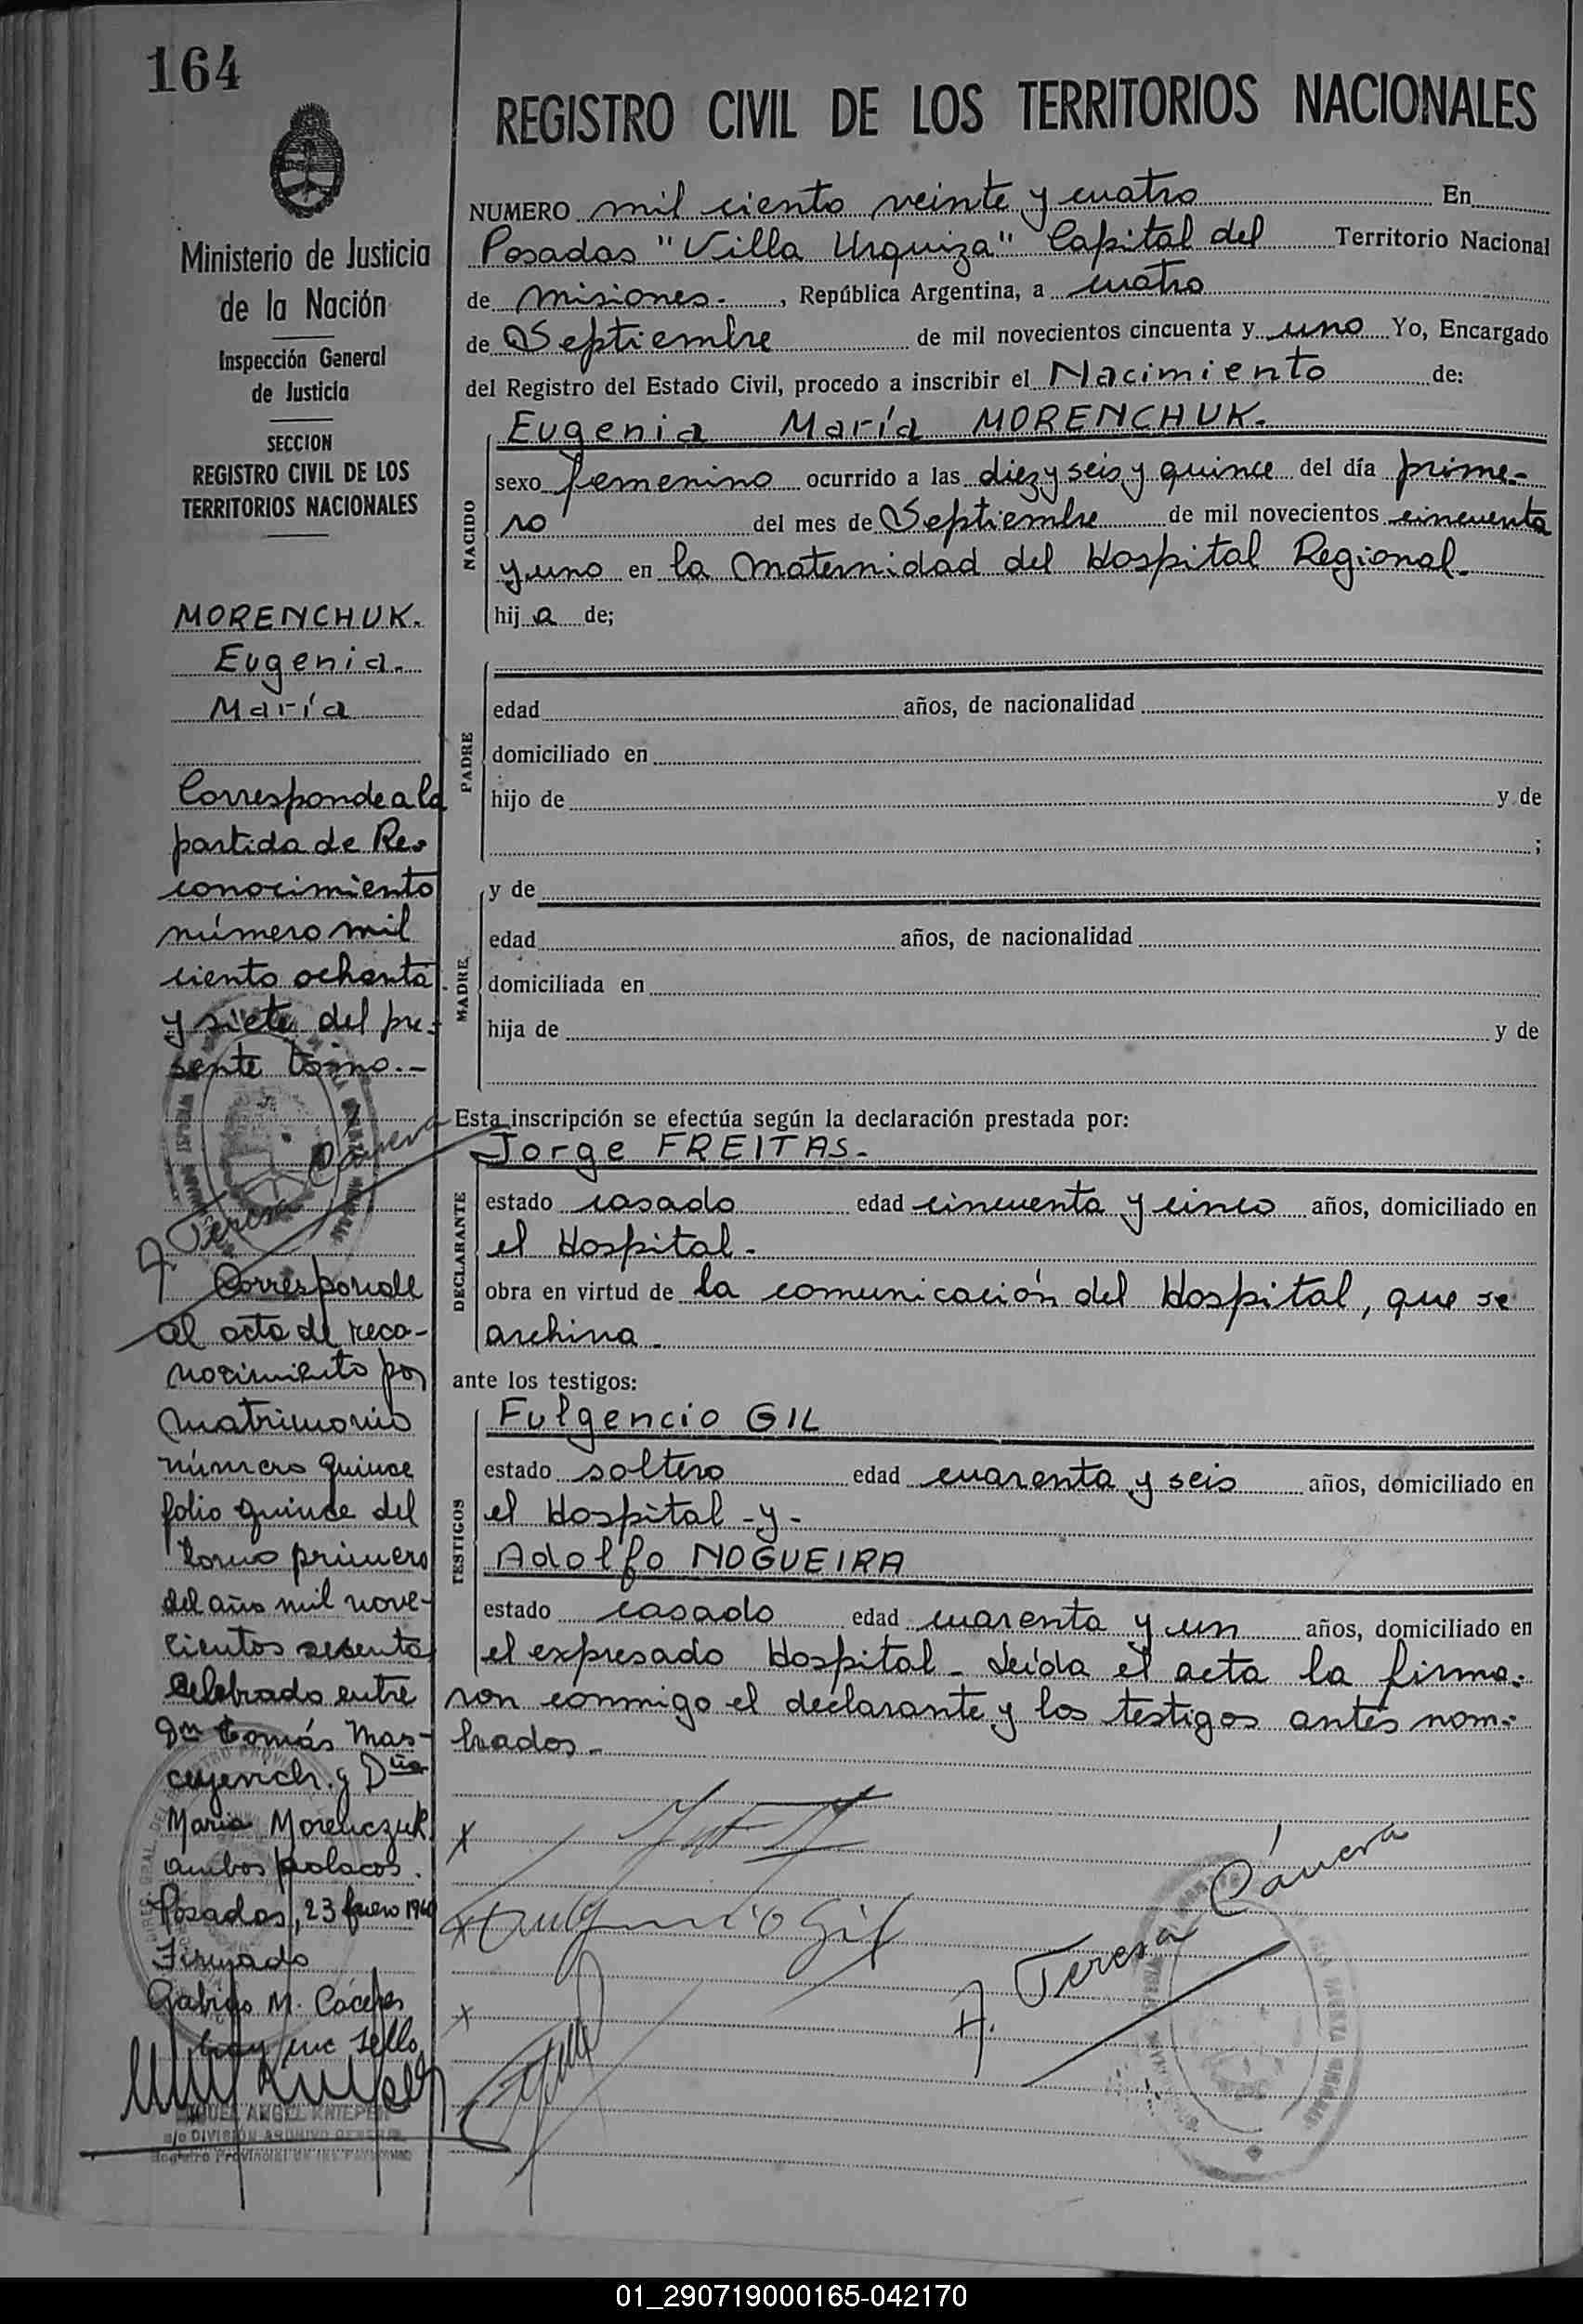 164
REGISTRO CIVIL DE LOS TERRITORIOS NACIONALES
Ministerio de Justicia
de la Nación
Inspección General
de Justicia
SECCION
REGISTRO CIVIL DE LOS
TERRITORIOS NACIONALES
MORENCHUK.
Eugenia.
María
Corresponde a la
partida de Re-
conocimiento
número mil
ciento ochenta
y siete del pre-
sente tomo.-
A. Teresa Cánera
Corresponde
al acta de reco-
nocimiento por
matrimonio
número quince
folio quince del
tomo primero
del año mil nove-
cientos sesenta
celebrado entre
Dn Tomás Mas-
y Dña
Maria Morenczuk
ambos polacos.
Posadas, 23 1960
Firmado
M. Cáceres
hay un sello
MIGUEL ANGEL KNIEPER
a/c DIVISION ARCHIVO GENERAL
NUMERO mil ciento veinte y cuatro En
Posadas "Villa Urquiza" Capital del Territorio Nacional
de Misiones.- , República Argentina, a cuatro
de Septiembre de mil novecientos cincuenta y uno Yo, Encargado
del Registro del Estado Civil, procedo a inscribir el Nacimiento de:
NACIDO
Eugenia María MORENCHUK.
sexo femenino ocurrido a las diez y seis y quince del día prime-
ro del mes de Septiembre de mil novecientos cincuenta
y uno en la Maternidad del Hospital Regional.
hij a de;
PADRE
edad años, de nacionalidad
domiciliado en
hijo de y de
;
MADRE
y de
edad años, de nacionalidad
domiciliada en
hija de y de
Esta inscripción se efectúa según la declaración prestada por:
DECLARANTE
Jorge FREITAS.
estado casado edad cincuenta y cinco años, domiciliado en
el Hospital.
obra en virtud de la comunicación del Hospital, que se
archiva.
ante los testigos:
TESTIGOS
Fulgencio GIL
estado soltero edad cuarenta y seis años, domiciliado en
el Hospital - y -
Adolfo NOGUEIRA
estado casado edad cuarenta y un años, domiciliado en
el expresado Hospital - Leída el acta la firma-
ron conmigo el declarante y los testigos antes nom-
brados.-
x
x Fulgencio Gil
x
A. Teresa Cánera
01_290719000165-042170